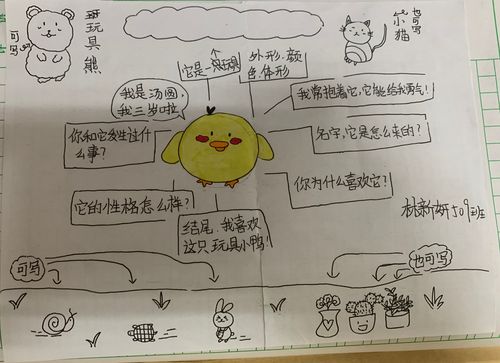 可写
玩具熊
也可写
小猫
它是一只玩具
外形、颜
色、体形
我是汤圆,
我三岁啦
我常抱着它,它能给我勇气!
你和它发生过什
么事?
名字,它是怎么来的?
它的性格怎么样?
你为什么喜欢它?
结尾、我喜欢
这只玩具小鸭!
可写
也可写